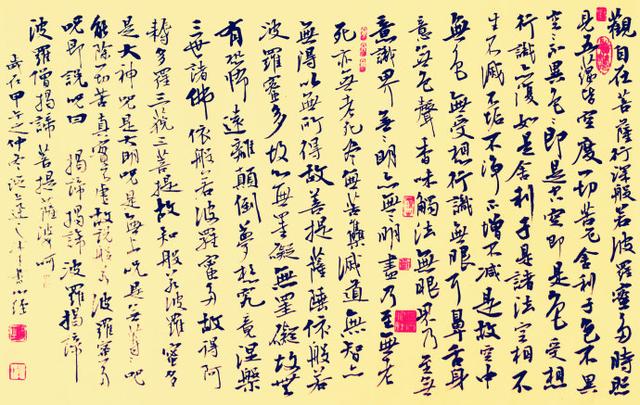 觀自在菩薩行深般若波羅蜜多時照
見五蘊皆空度一切苦厄舍利子色不異
空空不異色色即是空空即是色受想
行識亦復如是舍利子是諸法空相不
生不滅不垢不淨不增不減是故空中
無色無受想行識無眼耳鼻舌身
意無色聲香味觸法無眼界乃至無
意識界無無明亦無無明盡乃至無老
死亦無老死盡無苦集滅道無智亦
無得以無所得故菩提薩埵依般若
波羅蜜多故心無罣礙無罣礙故無
有恐怖遠離顛倒夢想究竟涅槃
三世諸佛依般若波羅蜜多故得阿
耨多羅三藐三菩提故知般若波羅蜜多
是大神呪是大明呪是無上呪是無等等呪
能除一切苦真實不虛故說般若波羅蜜多
呪即說呪曰 揭諦揭諦 波羅揭諦
波羅僧揭諦 菩提薩婆呵
歲在甲